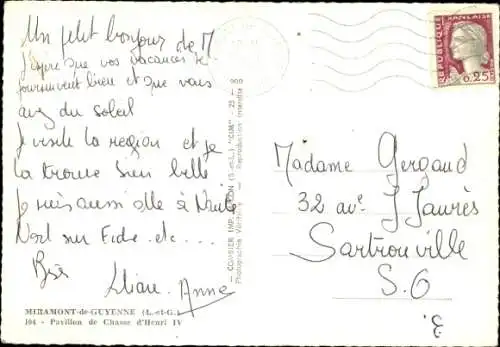 Un petit bonjour de M
J'espère que vos vacances se
poursuivent bien et que vous
avez du soleil
Je visite la région et je
la trouve bien belle
Je suis aussi allé à
sur etc...
Liliane. Anne
MIRAMONT-de-GUYENNE (L.-et-G.)
104 - Pavillon de Chasse d'Henri IV
COMBIER IMP. MACON (S.-et-L.) "CIM"
Photographie Véritable - Reproduction interdite
REPUBLIQUE FRANÇAISE
0,25
Madame Gergaud
32 ave J Jaurès
Sartrouville
S. O